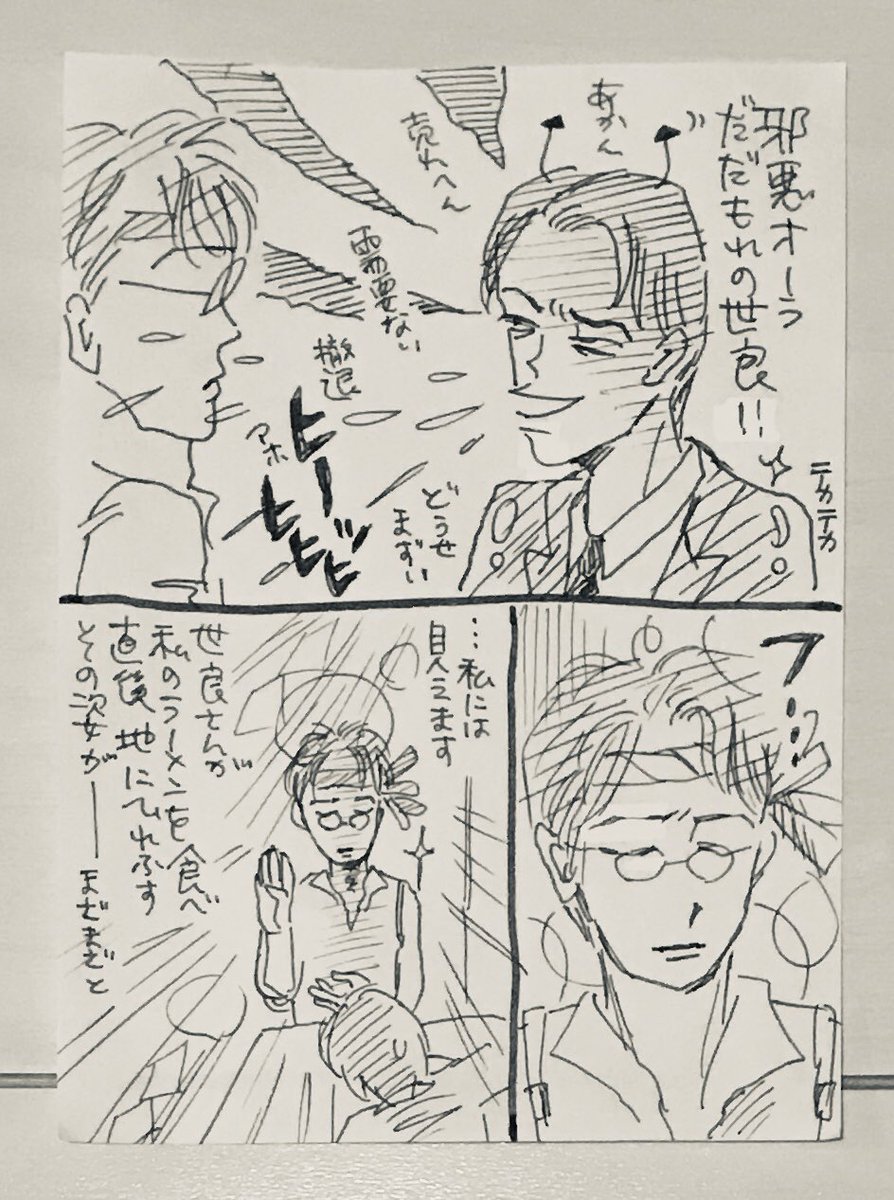 邪悪オーラ
だだもれの世良!!
テカテカ
あかん
売れへん
需要ない
撤退
アホ
ヒー
ヒヒビビ
どうせ
まずい
フ…
…私には
見えます
世良さんが
私のラーメンを食べ
直後地にひれふす
その姿が――まざまざと